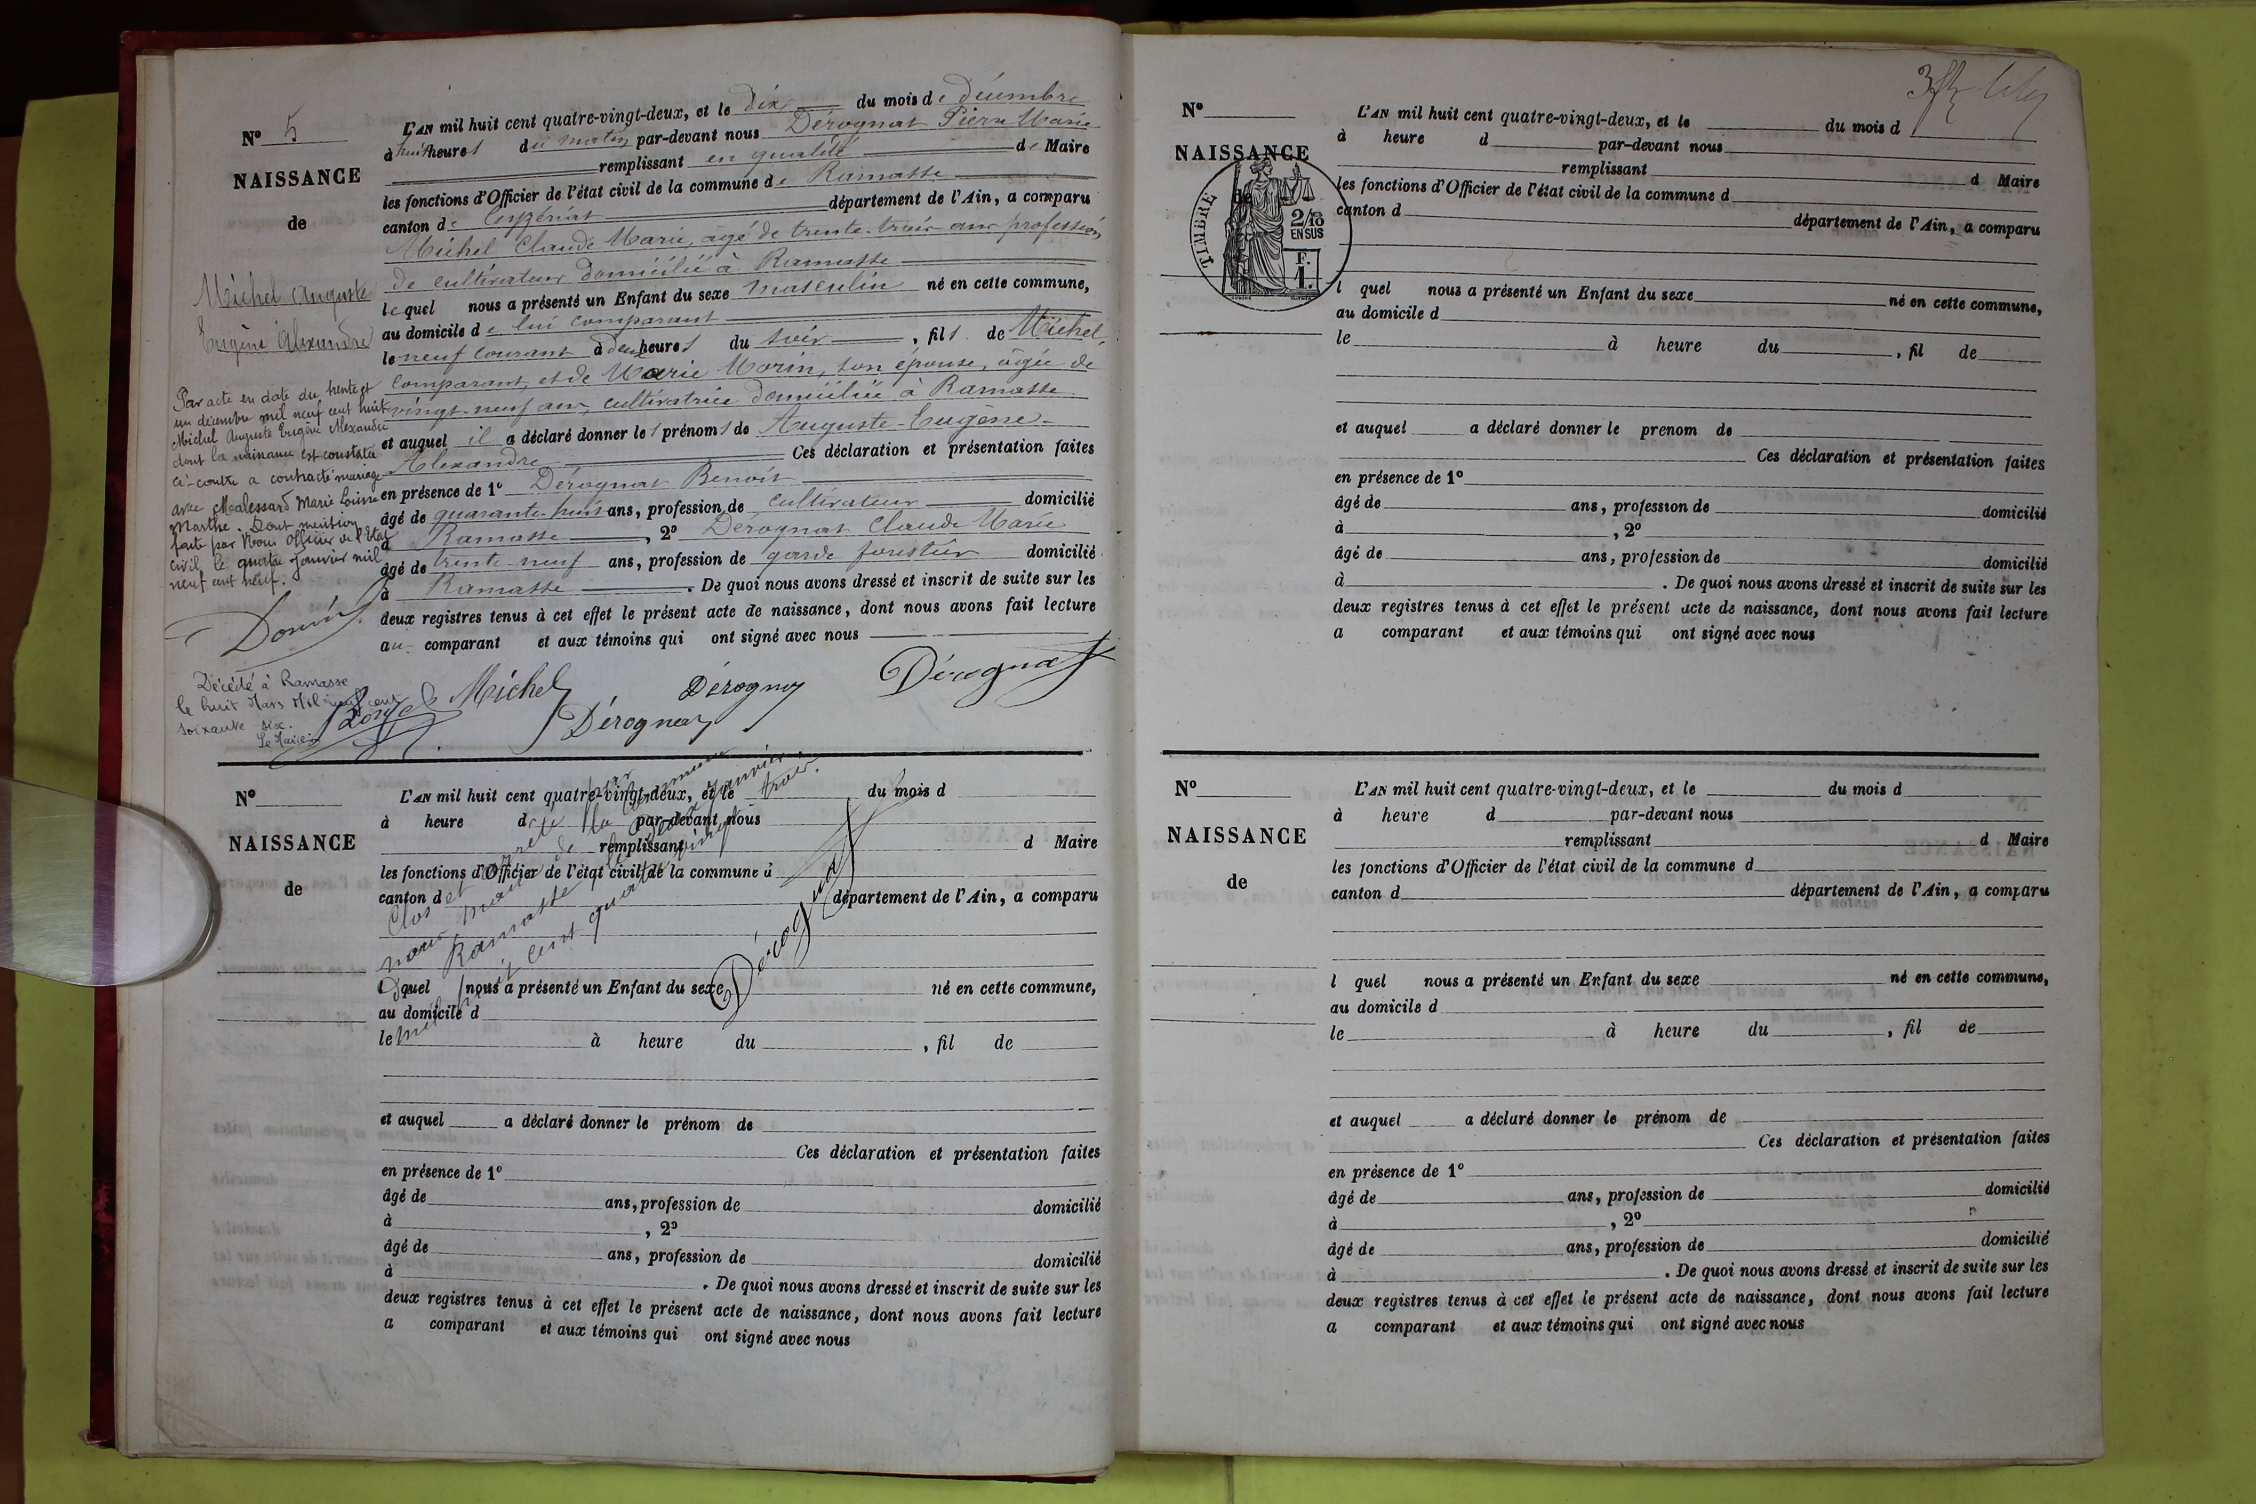 N° 5
NAISSANCE
de
Michel Auguste
Eugène Alexandre
Par acte en date du trente et
un décembre mil neuf cent huit
Michel Auguste Eugène Alexandre
dont la naissance est constatée
ci-contre a contracté mariage
avec Malessard Marie Louise
Marthe. Dont mention
faite par Nous Officier de l'Etat
civil, le quatre Janvier mil
neuf cent neuf.
Décédé à Ramasse
le huit Mars Mil neuf cent
soixante six.
Le Maire
L'AN mil huit cent quatre-vingt-deux, et le dix du mois de décembre
à huit heures du matin par-devant nous Dérognat Pierre Marie
remplissant en qualité de Maire
les fonctions d'Officier de l'état civil de la commune de Ramasse
canton de Ceyzériat département de l'Ain, a comparu
Michel Claude Marie, âgé de trente-trois ans profession
de cultivateur domicilié à Ramasse
lequel nous a présenté un Enfant du sexe masculin né en cette commune,
au domicile de lui comparant
le neuf courant à deux heures du soir, fils de Michel,
comparant, et de Marie Morin, son épouse, âgée de
vingt-neuf ans, cultivatrice domiciliée à Ramasse
et auquel il a déclaré donner les prénoms de Auguste-Eugène-
Alexandre Ces déclaration et présentation faites
en présence de 1° Dérognat Benoît
âgé de quarante-huit ans, profession de cultivateur domicilié
à Ramasse, 2° Dérognat Claude Marie
âgé de trente-neuf ans, profession de garde forestier domicilié
à Ramasse. De quoi nous avons dressé et inscrit de suite sur les
deux registres tenus à cet effet le présent acte de naissance, dont nous avons fait lecture
au comparant et aux témoins qui ont signé avec nous
Michel Dérognat Dérognat
Dérognat
N°
NAISSANCE
de
L'AN mil huit cent quatre-vingt-deux, et le du mois d
à heure d par-devant nous
remplissant d Maire
les fonctions d'Officier de l'état civil de la commune d
canton d département de l'Ain, a comparu
l quel nous a présenté un Enfant du sexe né en cette commune,
au domicile d
le à heure du , fil de
et auquel a déclaré donner le prénom de
Ces déclaration et présentation faites
en présence de 1°
âgé de ans, profession de domicilié
à , 2°
âgé de ans, profession de domicilié
à . De quoi nous avons dressé et inscrit de suite sur les
deux registres tenus à cet effet le présent acte de naissance, dont nous avons fait lecture
a comparant et aux témoins qui ont signé avec nous
Clos et arrêté par
nous maire de la commune
Ramasse le deux janvier
mil huit cent quatre vingt trois.
Dérognat
N°
NAISSANCE
de
TIMBRE
2/10 EN SUS
F. 1.
L'AN mil huit cent quatre-vingt-deux, et le du mois d
à heure d par-devant nous
remplissant d Maire
les fonctions d'Officier de l'état civil de la commune d
canton d département de l'Ain, a comparu
l quel nous a présenté un Enfant du sexe né en cette commune,
au domicile d
le à heure du , fil de
et auquel a déclaré donner le prenom de
Ces déclaration et présentation faites
en présence de 1°
âgé de ans, profession de domicilié
à , 2°
âgé de ans, profession de domicilié
à . De quoi nous avons dressé et inscrit de suite sur les
deux registres tenus à cet effet le présent acte de naissance, dont nous avons fait lecture
a comparant et aux témoins qui ont signé avec nous
N°
NAISSANCE
de
L'AN mil huit cent quatre-vingt-deux, et le du mois d
à heure d par-devant nous
remplissant d Maire
les fonctions d'Officier de l'état civil de la commune d
canton d département de l'Ain, a comparu
l quel nous a présenté un Enfant du sexe né en cette commune,
au domicile d
le à heure du , fil de
et auquel a déclaré donner le prénom de
Ces déclaration et présentation faites
en présence de 1°
âgé de ans, profession de domicilié
à , 2°
âgé de ans, profession de domicilié
à . De quoi nous avons dressé et inscrit de suite sur les
deux registres tenus à cet effet le présent acte de naissance, dont nous avons fait lecture
a comparant et aux témoins qui ont signé avec nous